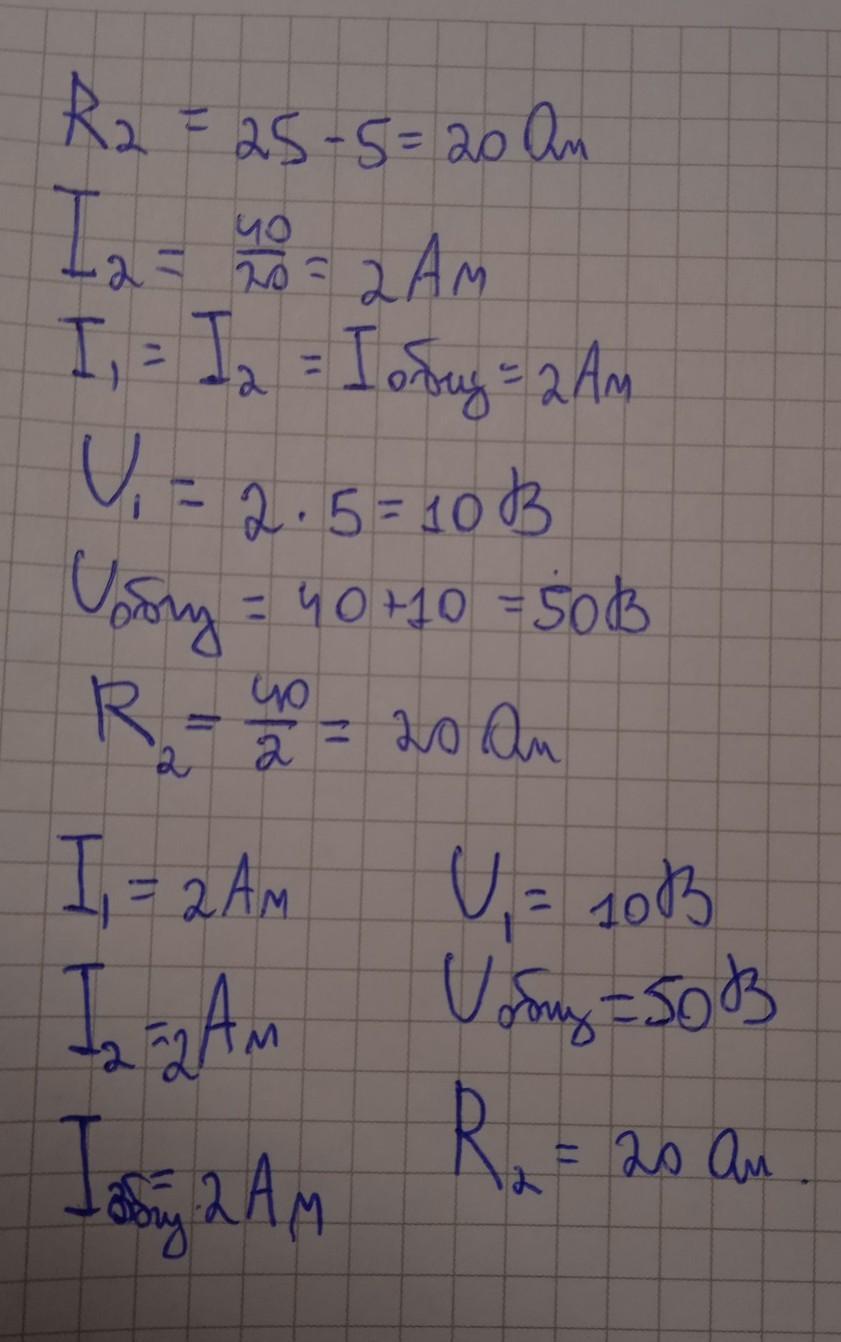 R₂ = 25 - 5 = 20 Ом
I₂ = 40/20 = 2 Ам
I₁ = I₂ = I общ = 2 Ам
U₁ = 2 · 5 = 10 В
U общ = 40 + 10 = 50 В
R₂ = 40/2 = 20 Ом
I₁ = 2 Ам U₁ = 10 В
I₂ = 2 Ам U общ = 50 В
I общ = 2 Ам R₂ = 20 Ом.